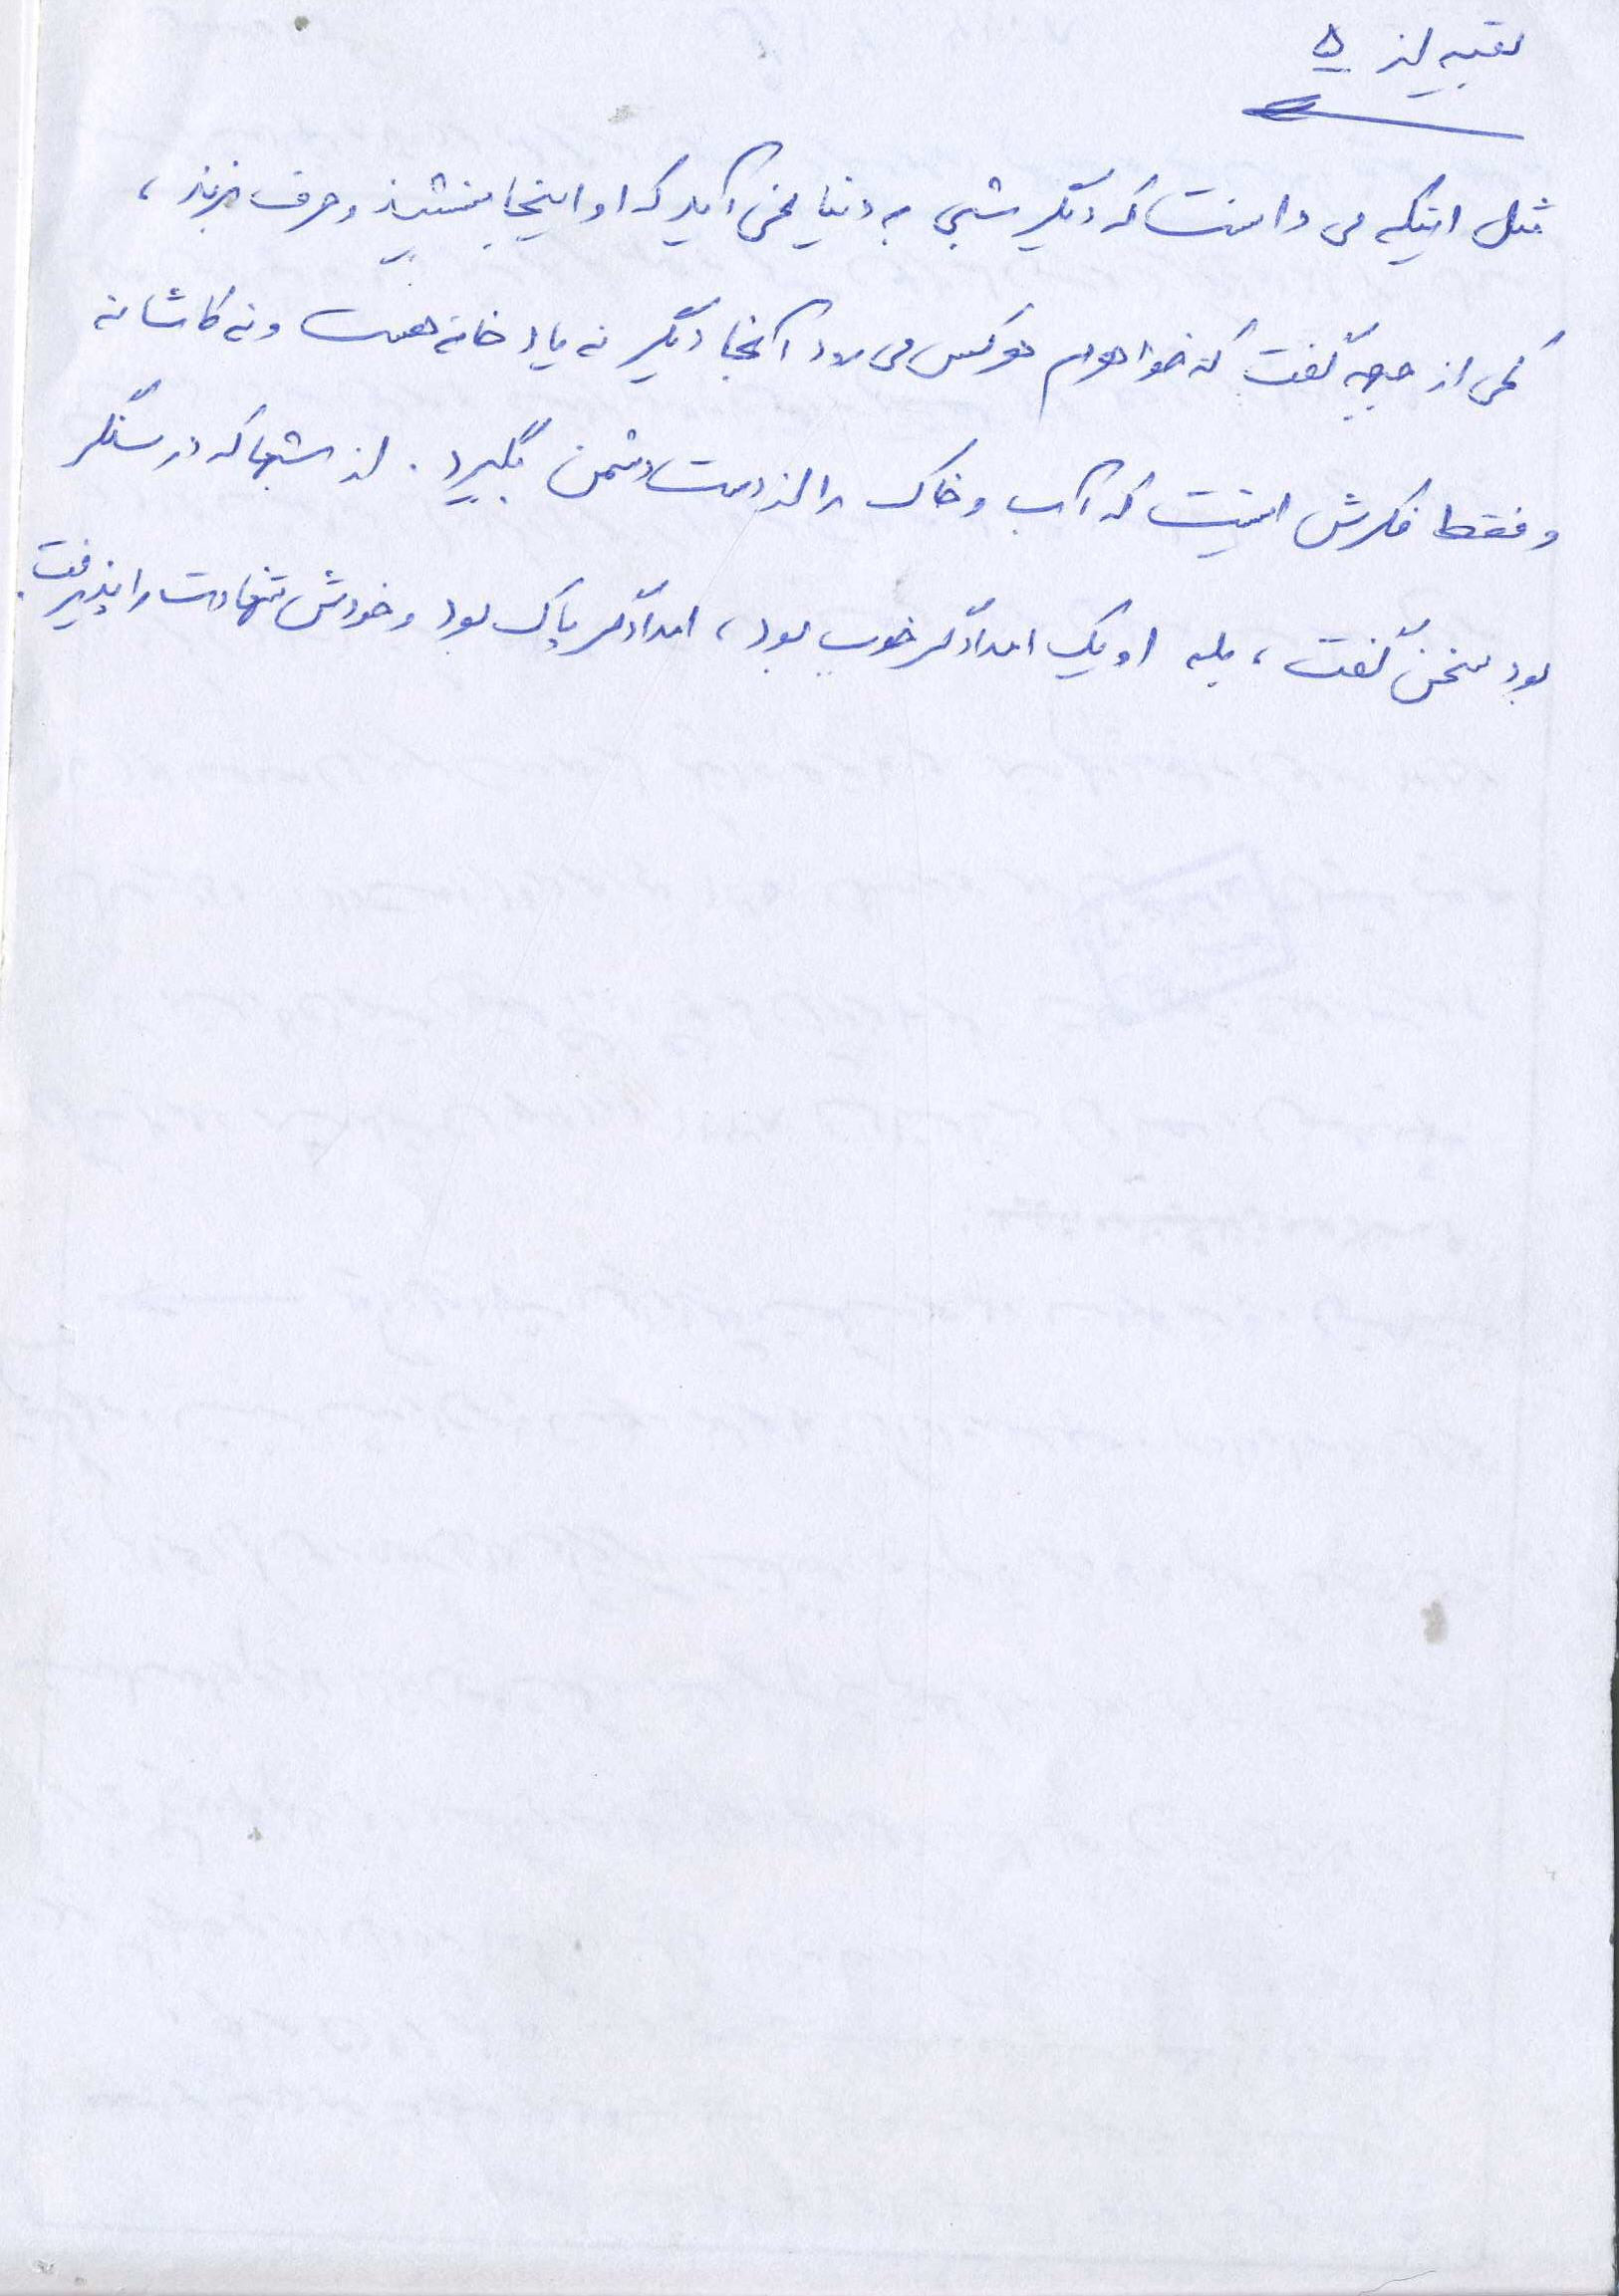 بقیه از ۵
مثل اینکه می دانست که دیگر شبی به دنیا نمی آید که او اینجا بنشیند و حرف بزند،
کمی از جبهه گفت که خواهرم هر کس می رود آنجا دیگر نه یاد خانه هست و نه کاشانه
و فقط فکرش اینست که آب و خاک را از دست دشمن بگیرد. از شبها که در سنگر
بود سخن گفت، بله او یک امدادگر خوب بود، امدادگر پاک بود و خودش شهادت را پذیرفت.